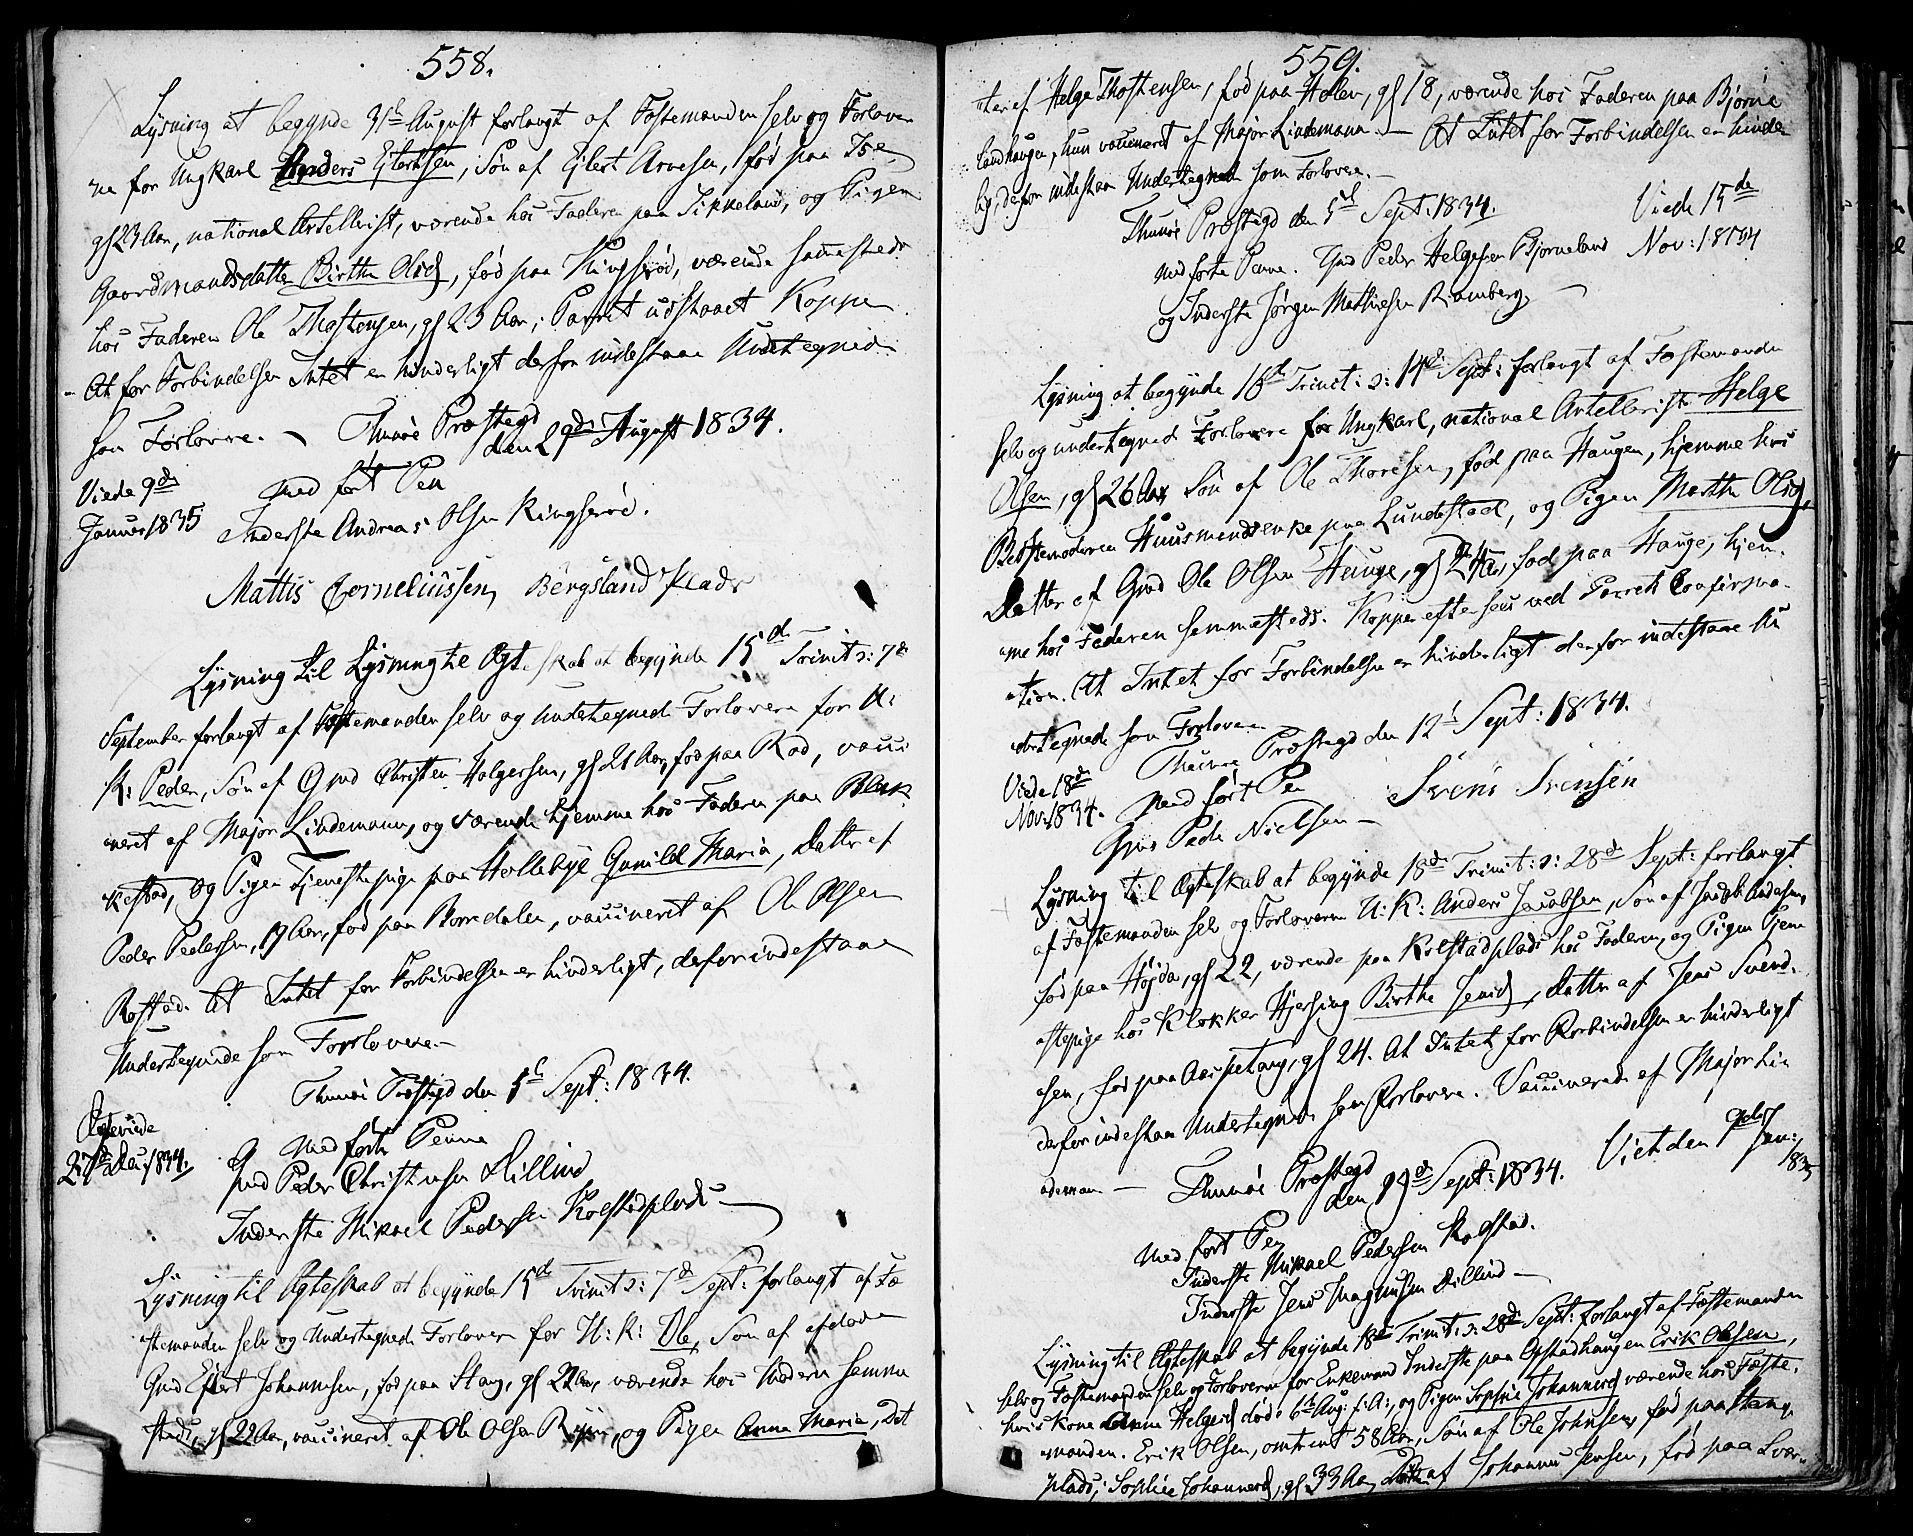 558.
Lysning at begynde 31te August forlangt af Fæstemanden selv og Forlover
ne for Ungkarl Anders Ejlertsen, Søn af Ejlert Arnesen, fød paa
gl 23 Aar, national Artellerist, værende hos Faderen paa Sikkeland, og Pigen
Gaardmandsdatter Birthe Olsd, fød paa Ringsrød, værende sammesteds
hos Faderen Ole Thostensen, gl 23 Aar; Parret udstaaet Kopper
- At for Forbindelsen Intet er hinderligt derfor indestaae Undertegnede
som Forlovere. - Thunøe Præstegd
den 29de August 1834.
Viede 9de
Januar 1835
med ført Pen
Inderste Andreas Olsen Ringserød.
Mattis Corneliussen, Bergsland Plads
Lysning til Lysning til Ægteskab at begynde 15de Trinit: 7de
September forlangt af Fæstemanden selv og undertegnede Forlovere for U:
K: Peder, Søn af Gmd Christen Holgersen, gl 21 Aar, fød paa Rød, vacci
neret af Major Lindemann, og værende hjemme hos Faderen paa Blak
kestad, og Pigen Tjenestepige paa Hollebye Gunild Maria, Datter af
Peder Pedersen, 19 Aar, fød paa Borredalen, vaccineret af Ole Olsen
Rostad. At Intet for Forbindelsen er hinderligt, derfor indestaae
Undertegnede som Forlovere. -
Thunøe Præstegd den 5te Sept: 1834.
Ægteviede
27de Dec: 1834.
med førte Penne
Gmd Peder Christensen Hillind
Inderste Mikael Pedersen Kolstadplads -
Lysning til Ægteskab at begynde 15de Trinit: 7de Sept: forlangt af Fæ
stemanden selv og Undertegnede Forlovere for U: K: Ole, Søn af afdøde
Gmd Ejlert Johannesen, fød paa Stang, gl 22 Aar, værende hos Moderen samme
steds, gl 22 Aar, vaccineret af Ole Olsen, og Pigen Anna Maria, Dat
559.
ter af Helge Thostensen, fød paa Holen, gl 18, værende hos Faderen paa Bjørne
landhaugen, hun vaccineret af Major Lindemann. - At Intet for Forbindelsen er hinder
lig, derfor indestaae Undertegnede som Forlovere. -
Thunøe Præstegd den 5te Sept: 1834.
Viede 15de
Nov: 1834
med førte Penne. Gmd Peder Helgesen Bjørneland
og Inderste Jørgen Mathiesen Ramberg. -
Lysning at begynde 16de Trinit: 14de Sept: forlangt af Fæstemanden
selv og undertegnede Forlovere for Ungkarl, national Artellerist Helge
Olsen, gl 26 Aar, Søn af Ole Thoresen, fød paa Haugen, hjemme hos
Bedstemoderen Huusmandsenke paa Lundestad, og Pigen Marthe Olsd,
Datter af Gmd Ole Olsen Hauge, gl 24 Aar, fød paa Hauge, hjem-
me hos Faderen sammesteds. Kopper eftersees ved Parrets Confirma-
tion. At Intet for Forbindelsen er hinderligt derfor indestaae Un
dertegnede som Forlovere
Thunøe Præstegd den 12te Sept: 1834.
Viede 18de
Nov: 1834.
med ført Pen
Gmd Peder Nielsen - Svend Svensen
Lysning til Ægteskab at begynde 18de Trinit: 28de Sept: forlangt
af Fæstemanden selv og Forloverne U: K: Anders Jacobsen, Søn af Jacob Andersen,
fød paa Højda, gl 22, værende paa Kolstadplads hos Faderen, og Pigen Tjene
stepige hos Klokker Hjersing Birthe Jensd, Datter af Jens Svend-
sen, fød paa Aaspetang, gl 24. At Intet for Forbindelsen er hinderligt
derfor indestaae Undertegnede som Forlovere. Vaccinerede af Major Lin
demann -
Thunøe Præstegd
den 19de Sept: 1834.
Viet den 9de Jan:
1835
Med ført Pen
Inderste Mikael Pedersen Kolstad.
Inderste Jens Magnusen Hillind -
Lysning til Ægteskab at begynde 18de Trinit: 28de Sept: forlangt af Fæstemanden
selv og Fæstemanden selv og Forloverne for Enkemand Inderste paa Opstadhaugen Erik Olsen,
hvis Kone Anne Helgesd døde 6te Aug: f: A:, og Pigen Sophie Johannesd værende hos Fæste-
manden. Erik Olsen, omtrent 58 Aar, Søn af Ole Johnsen, fød paa Stang
plads; Sophie Johannesd, gl 33 Aar, Datter af Johannes Jensen, fød paa Svær